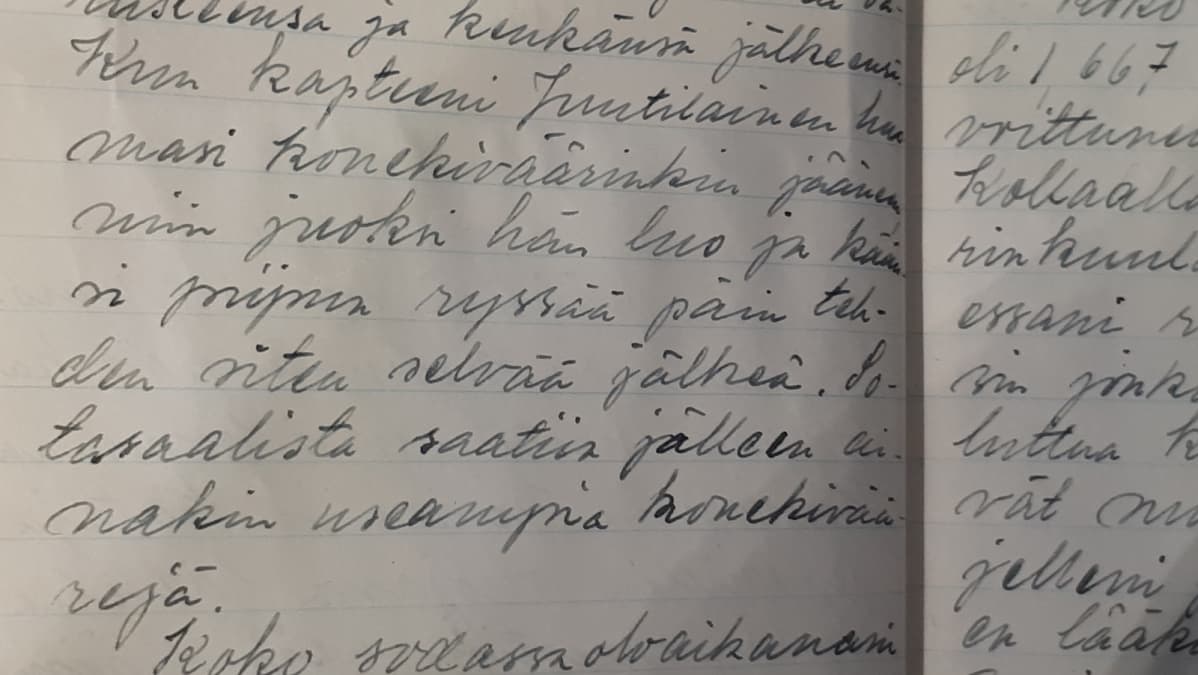 ja kenkänsä jälkeensä.
Kun kapteeni Juutilainen huo-
masi konekiväärinkin jäänen,
niin juoksi hän luo ja kään-
si piipun ryssää päin teh-
den siten selvää jälkeä. So-
tasaalista saatiin jälleen ai-
nakin useampia konekivää-
rejä.
Koko sodassa oloaikanani
oli 1,667
Kollaalla
essani
vät
jelleni
en lääk